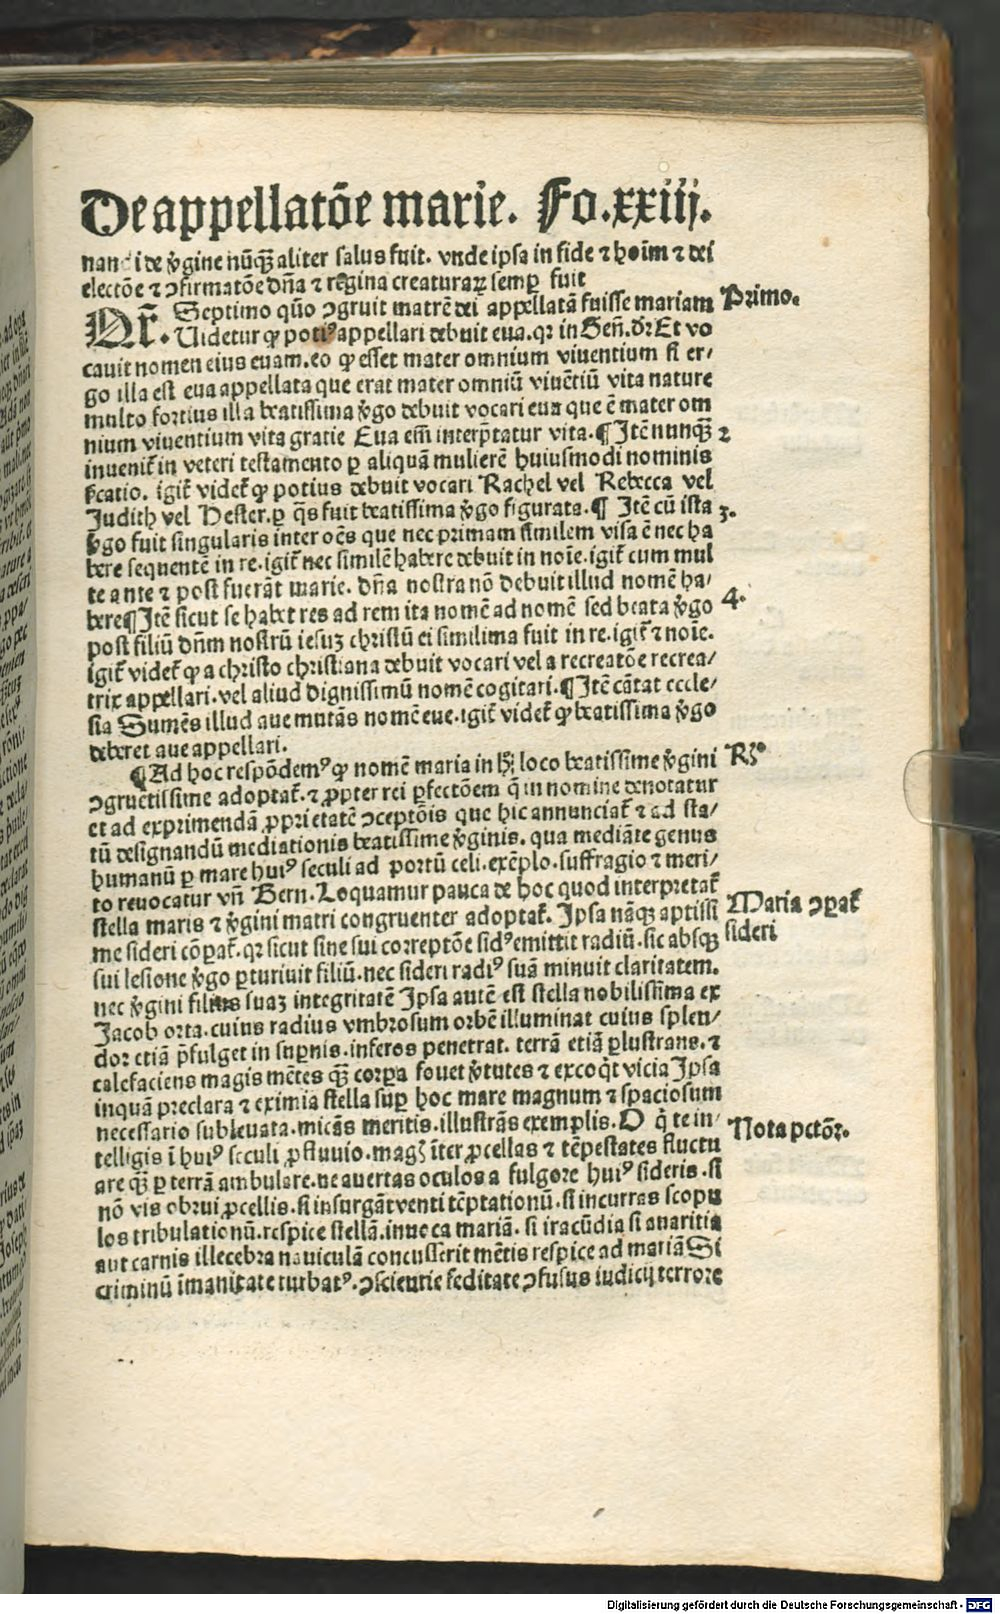 De appellatōe marie. Fo.xxiij.
nandi de v̾gine nūq̄ȝ aliter salus fuit. vnde ipsa in fide ⁊ hoīm ⁊ dei
electōe ⁊ ↄfirmatōe dn̄a ⁊ regina creaturaꝝ semꝑ fuit
Septimo q̄ūo ↄgruit matrē dei appellatā fuisse mariam Primo.
Qr̄. Uidetur ꝙ poti⁹ appellari debuit eua. qꝛ in Gen̄. dꝛ̄ Et vo
cauit nomen eius euam. eo ꝙ esset mater omnium viuentium si er/
go illa est eua appellata que erat mater omniū viuētiū vita nature
multo fortius illa beatissima v̾go debuit vocari eua que ē mater om
nium viuentium vita gratie Eua em̄ interp̄tatur vita. ¶ Itē nunq̄ȝ 2
inuenit᷑ in veteri testamento ꝑ aliquā mulierē huiusmodi nominis
ſ̾catio. igit᷑ videt᷑ ꝙ potius debuit vocari Rachel vel Rebecca vel
Judith vel Hester. ꝑ q̄s fuit beatissima v̾go figurata. ¶ Itē cū ista 3.
v̾go fuit singularis inter oēs que nec primam similem visa ē nec ha
bere sequentē in re. igit᷑ nec similē habere debuit in noīe. igit᷑ cum mul
te ante ⁊ post fuerāt marie. dn̄a nostra nō debuit illud nomē ha/
bere ¶ Itē sicut se habet res ad rem ita nomē ad nomē sed beata v̾go 4.
post filiū dn̄m nostrū iesuȝ christū ei similima fuit in re. igit᷑ ⁊ noīe.
igit᷑ videt᷑ ꝙ a christo christiana debuit vocari vel a recreatōe recrea/
trix appellari. vel aliud dignissimū nomē cogitari. ¶ Itē cātat eccle/
sia Sumēs illud aue mutās nomē eue. igit᷑ videt᷑ ꝙ beatissima v̾go
deberet aue appellari.
¶ Ad hoc respōdem⁹ ꝙ nomē maria in hͦ loco beatissime v̾gini Rȝ⁰
ↄgruētissime adoptat᷑. ⁊ ꝓpter rei ꝑfectōem q̄ in nomine denotatur
et ad exprimendā ꝓprietatē ↄceptōis que hic annunciat᷑ ⁊ ad sta/
tū designandū mediationis beatissime v̾ginis. qua mediāte genus
humanū ꝑ mare hui⁹ seculi ad portū celi. exēplo. suffragio ⁊ meri/
to reuocatur vn̄ Bern. Loquamur pauca de hoc quod interpretat᷑
stella maris ⁊ v̾gini matri congruenter adoptat᷑. Ipsa nāqȝ aptissi Maria ↄꝑat᷑
me sideri cōꝑat᷑. qꝛ sicut sine sui correptōe sid⁹ emittit radiū. sic absqȝ sideri
sui lesione v̾go ꝑturiuit filiū. nec sideri radi⁹ suā minuit claritatem.
nec v̾gini filius suaȝ integritatē Ipsa autē est stella nobilissima ex
Jacob orta. cuius radius vmbrosum orbē illuminat cuius splen/
dor etiā p̄fulget in suꝑnis. inferos penetrat. terrā etiā ꝑlustrans. ⁊
calefaciens magis mētes q̄ȝ corꝑa fouet v̾tutes ⁊ excoq̇t vicia Ipsa
inquā preclara ⁊ eximia stella suꝑ hoc mare magnum ⁊ spaciosum
necessario subleuata. micās meritis. illustrās exemplis. O q̇ te in/ Nota pctōꝛ.
telligis ī hui⁹ seculi ꝓfluuio. magȝ īter ꝓcellas ⁊ tēpestates fluctu
are q̄ȝ ꝑ terrā ambulare. ne auertas oculos a fulgore hui⁹ sideris. si
nō vis obrui ꝓcellis. si insurgāt venti tēptationū. si incurras scopu
los tribulationū. respice stellā. inuoca mariā. si iracūdia si auaritia
aut carnis illecebra nauiculā concusserit mētis respice ad mariā Si
criminū īmanitate turbat⁹. ↄscientie feditate ↄfusus iudicij terrore
Digitalisierung gefördert durch die Deutsche Forschungsgemeinschaft - DFG